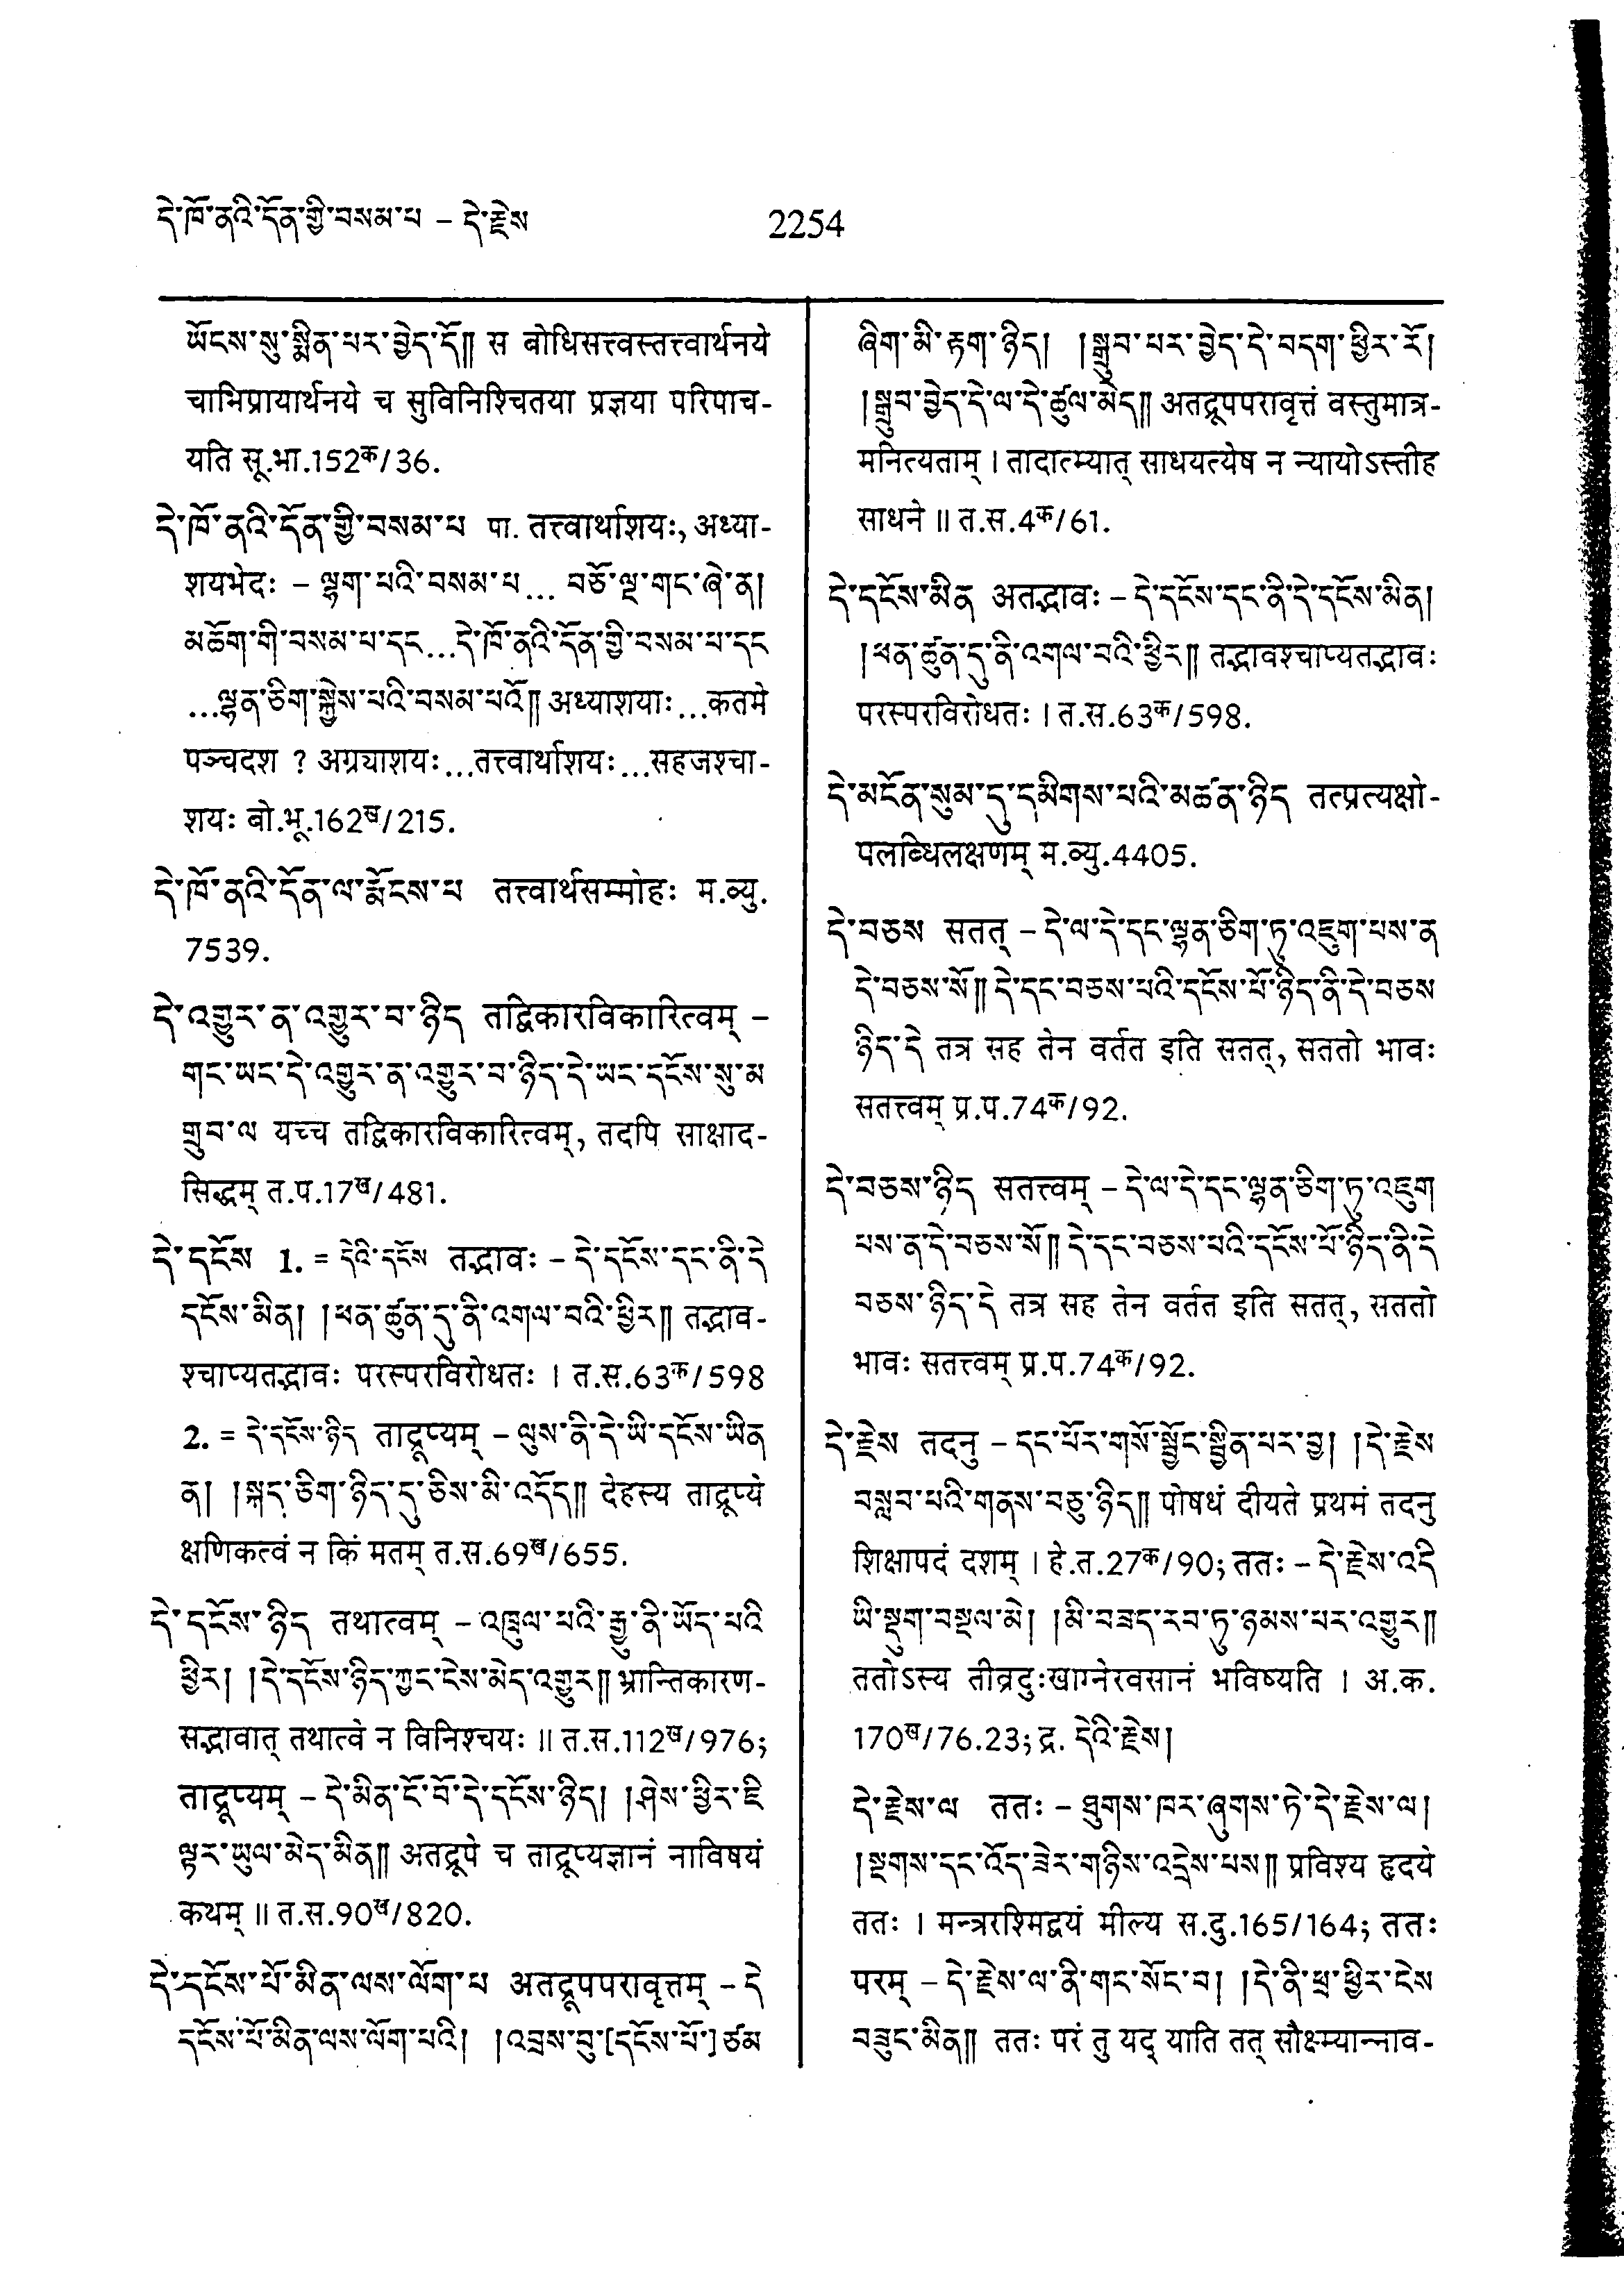 དེ་ཁོ་ནའི་དོན་གྱི་བསམ་པ – དེ་རྗེས
2254
ཡོངས་སུ་སྨིན་པར་བྱེད་དོ༎ स बोधिसत्त्वस्तत्त्वार्थनये
चाभिप्रायार्थनये च सुविनिश्चितया प्रज्ञया परिपाच-
यति सू.भा.152क/36.
དེ་ཁོ་ནའི་དོན་གྱི་བསམ་པ पा. तत्त्वार्थाशयः, अध्या-
शयभेदः – ལྷག་པའི་བསམ་པ... བཅོ་ལྔ་གང་ཞེ་ན།
མཆོག་གི་བསམ་པ་དང...དེ་ཁོ་ནའི་དོན་གྱི་བསམ་པ་དང
...ལྷན་ཅིག་སྐྱེས་པའི་བསམ་པའོ༎ अध्याशयाः...कतमे
पञ्चदश ? अग्र्याशयः...तत्त्वार्थाशयः...सहजश्चा-
शयः बो.भू.162ख/215.
དེ་ཁོ་ནའི་དོན་ལ་རྨོངས་པ तत्त्वार्थसम्मोहः म.व्यु.
7539.
དེ་འགྱུར་ན་འགྱུར་བ་ཉིད तद्विकारविकारित्वम् –
གང་ཡང་དེ་འགྱུར་ན་འགྱུར་བ་ཉིད་དེ་ཡང་དངོས་སུ་མ
གྲུབ་ལ यच्च तद्विकारविकारित्वम्, तदपि साक्षाद-
सिद्धम् त.प.17ख/481.
དེ་དངོས 1. = དེའི་དངོས तद्भावः – དེ་དངོས་དང་ནི་དེ
དངོས་མིན། །ཕན་ཚུན་དུ་ནི་འགལ་བའི་ཕྱིར༎ तद्भाव-
श्चाप्यतद्भावः परस्परविरोधतः । त.स.63क/598
2. = དེ་དངོས་ཉིད ताद्रूप्यम् – ལུས་ནི་དེ་ཡི་དངོས་ཡིན
ན། །སྐད་ཅིག་ཉིད་དུ་ཅིས་མི་འདོད༎ देहस्य ताद्रूप्ये
क्षणिकत्वं न किं मतम् त.स.69ख/655.
དེ་དངོས་ཉིད तथात्वम् – འཁྲུལ་པའི་རྒྱུ་ནི་ཡོད་པའི
ཕྱིར། །དེ་དངོས་ཉིད་ཀྱང་ངེས་མེད་འགྱུར༎ भ्रान्तिकारण-
सद्भावात् तथात्वे न विनिश्चयः ॥ त.स.112ख/976;
ताद्रूप्यम् – དེ་མིན་ངོ་བོ་དེ་དངོས་ཉིད། །ཤེས་ཕྱིར་ཇི
ལྟར་ཡུལ་མེད་མིན༎ अतद्रूपे च ताद्रूप्यज्ञानं नाविषयं
कथम् ॥ त.स.90ख/820.
དེ་དངོས་པོ་མིན་ལས་ལོག་པ अतद्रूपपरावृत्तम् – དེ
དངོས་པོ་མིན་ལས་ལོག་པའི། །འབྲས་བུ་[དངོས་པོ་]ཙམ
ཞིག་མི་རྟག་ཉིད། །སྒྲུབ་པར་བྱེད་དེ་བདག་ཕྱིར་རོ།
།སྒྲུབ་བྱེད་དེ་ལ་དེ་ཚུལ་མེད༎ अतद्रूपपरावृत्तं वस्तुमात्र-
मनित्यताम् । तादात्म्यात् साधयत्येष न न्यायोऽस्तीह
साधने ॥ त.स.4क/61.
དེ་དངོས་མིན अतद्भावः – དེ་དངོས་དང་ནི་དེ་དངོས་མིན།
།ཕན་ཚུན་དུ་ནི་འགལ་བའི་ཕྱིར༎ तद्भावश्चाप्यतद्भावः
परस्परविरोधतः । त.स.63क/598.
དེ་མངོན་སུམ་དུ་དམིགས་པའི་མཚན་ཉིད तत्प्रत्यक्षो-
पलब्धिलक्षणम् म.व्यु.4405.
དེ་བཅས सतत् – དེ་ལ་དེ་དང་ལྷན་ཅིག་ཏུ་འཇུག་པས་ན
དེ་བཅས་སོ༎ དེ་དང་བཅས་པའི་དངོས་པོ་ཉིད་ནི་དེ་བཅས
ཉིད་དེ तत्र सह तेन वर्तत इति सतत्, सततो भावः
सतत्त्वम् प्र.प.74क/92.
དེ་བཅས་ཉིད सतत्त्वम् – དེ་ལ་དེ་དང་ལྷན་ཅིག་ཏུ་འཇུག
པས་ན་དེ་བཅས་སོ༎ དེ་དང་བཅས་པའི་དངོས་པོ་ཉིད་ནི་དེ
བཅས་ཉིད་དེ तत्र सह तेन वर्तत इति सतत्, सततो
भावः सतत्त्वम् प्र.प.74क/92.
དེ་རྗེས तदनु – དང་པོར་གསོ་སྦྱོང་སྦྱིན་པར་བྱ། །དེ་རྗེས
བསླབ་པའི་གནས་བཅུ་ཉིད༎ पोषधं दीयते प्रथमं तदनु
शिक्षापदं दशम् । हे.त.27क/90; ततः – དེ་རྗེས་འདི
ཡི་སྡུག་བསྔལ་མེ། །མི་བཟད་རབ་ཏུ་ཉམས་པར་འགྱུར༎
ततोऽस्य तीव्रदुःखाग्नेरवसानं भविष्यति । अ.क.
170ख/76.23; द्र. དེའི་རྗེས།
དེ་རྗེས་ལ ततः – ཐུགས་ཁར་ཞུགས་ཏེ་དེ་རྗེས་ལ།
།སྔགས་དང་འོད་ཟེར་གཉིས་འདྲེས་པས༎ प्रविश्य हृदये
ततः । मन्त्ररश्मिद्वयं मील्य स.दु.165/164; ततः
परम् – དེ་རྗེས་ལ་ནི་གང་སོང་བ། །དེ་ནི་ཕྲ་ཕྱིར་ངེས
བཟུང་མིན༎ ततः परं तु यद् याति तत् सौक्ष्म्यान्नाव-